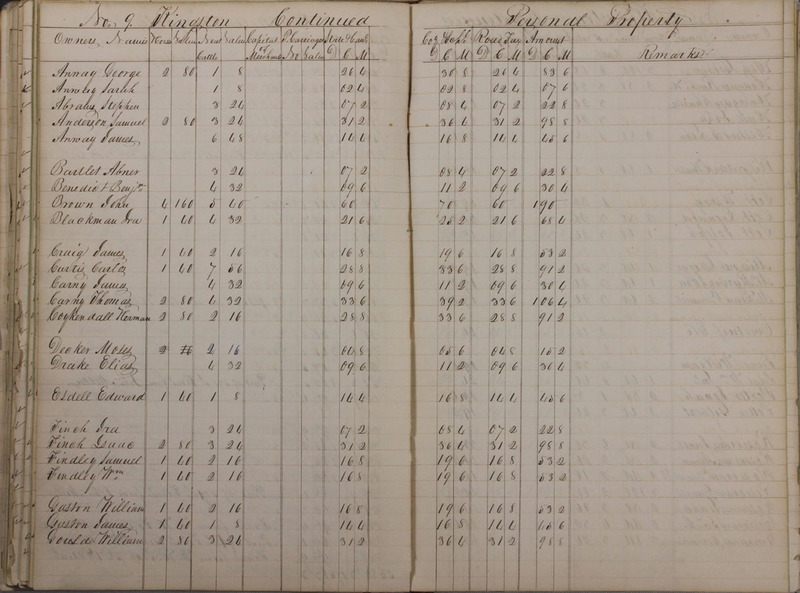 No. 9 Kingston Continued Personal Property
Owners Names Horses Value Neat Cattle Value Capital in Merchandise P. Carriages No Value State & Canal Co & Schl Road Tax Amount
D C M D C M D C M D C M Remarks
Anway George 2 80 1 8 26 4 30 8 26 4 83 6
Anway Sarah 1 8 02 4 02 8 02 4 07 6
Abrams Stephen 3 24 07 2 08 4 07 2 22 8
Anderson Samuel 2 80 3 24 31 2 36 4 31 2 98 8
Anway James 6 48 14 4 16 8 14 4 45 6
Bartlet Abner 3 24 07 2 08 4 07 2 22 8
Benedict Benjn 4 32 09 6 11 2 09 6 30 4
Brown John 4 160 5 40 60 70 60 190
Blackman Ira 1 40 4 32 21 6 25 2 21 6 68 4
Craig James 1 40 2 16 16 8 19 6 16 8 53 2
Curtis Carlos 1 40 7 56 28 8 33 6 28 8 91 2
Carny James 4 32 09 6 11 2 09 6 30 4
Carny Thomas 2 80 4 32 33 6 39 2 33 6 106 4
Coykendall Herman 2 80 2 16 28 8 33 6 28 8 91 2
Decker Moses 2 2 16 04 8 05 6 04 8 15 2
Drake Elias 4 32 09 6 11 2 09 6 30 4
Esdell Edward 1 40 1 8 14 4 16 8 14 4 45 6
Finch Ira 3 24 07 2 08 4 07 2 22 8
Finch Isaac 2 80 3 24 31 2 36 4 31 2 98 8
Findley Samuel 1 40 2 16 16 8 19 6 16 8 53 2
Findley Wm. 1 40 2 16 16 8 19 6 16 8 53 2
Gaston William 1 40 2 16 16 8 19 6 16 8 53 2
Gaston James 1 40 1 8 14 4 16 8 14 4 45 6
Gould William 2 80 3 24 31 2 36 4 31 2 98 8